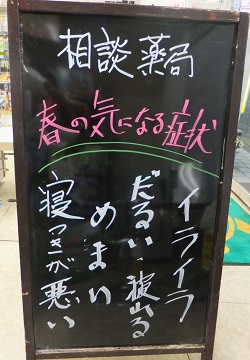 相談薬局
春の気になる症状
イライラ
だるい・疲れる
めまい
寝つきが悪い